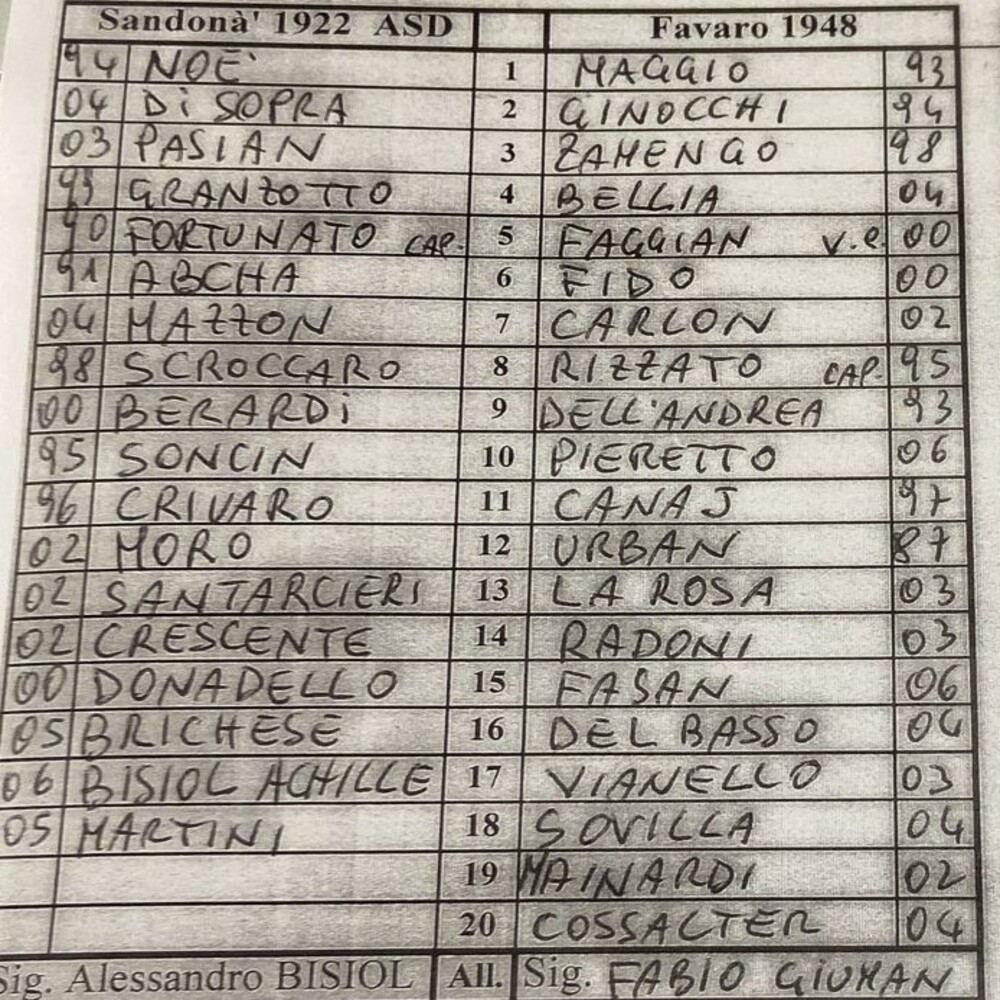 Sandonà' 1922 ASD Favaro 1948
94 NOE' 1 MAGGIO 93
04 Di SOPRA 2 GINOCCHI 94
03 PASIAN 3 ZAMENGO 98
93 GRANZOTTO 4 BELLIA 04
90 FORTUNATO CAP. 5 FAGGIAN V.C. 00
91 ABCHA 6 FIDO 00
04 MAZZON 7 CARLON 02
98 SCROCCARO 8 RIZZATO CAP. 95
00 BERARDi 9 DELL'ANDREA 93
95 SONCIN 10 PIERETTO 06
96 CRIVARO 11 CANAJ 97
02 MORO 12 URBAN 87
02 SANTARCIERI 13 LA ROSA 03
02 CRESCENTE 14 RADONI 03
00 DONADELLO 15 FASAN 06
05 BRICHESE 16 DEL BASSO 04
06 BISIOL ACHILLE 17 VIANELLO 03
05 MARTINI 18 SOVILLA 04
19 MAINARDI 02
20 COSSALTER 04
Sig. Alessandro BISIOL All. Sig. FABIO GIUMAN